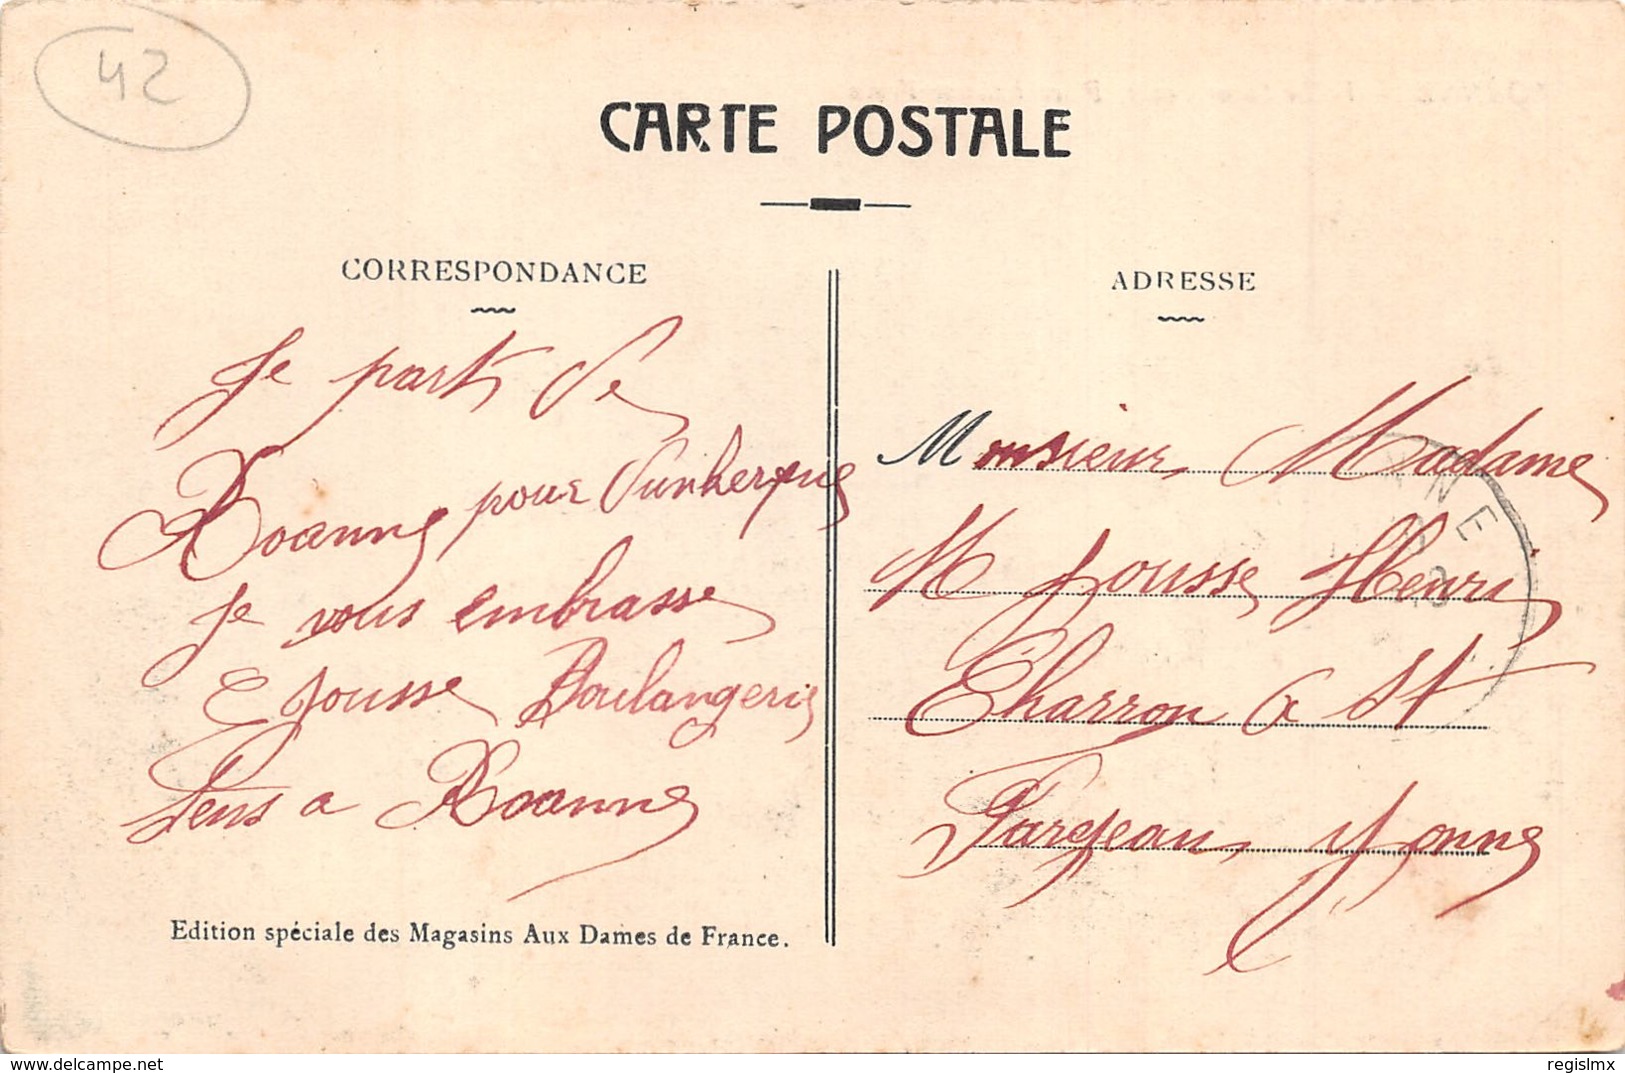 42
CARTE POSTALE
CORRESPONDANCE
Je parts de
Roanne pour Dunkerque
Je vous embrasse
E Jousse Boulangerie
Sens a Roanne
Edition spéciale des Magasins Aux Dames de France.
ADRESSE
Monsieur Madame
M Jousse Henri
Charron a St
Fargeau Yonne
NNE
delcampe.net
regislmx